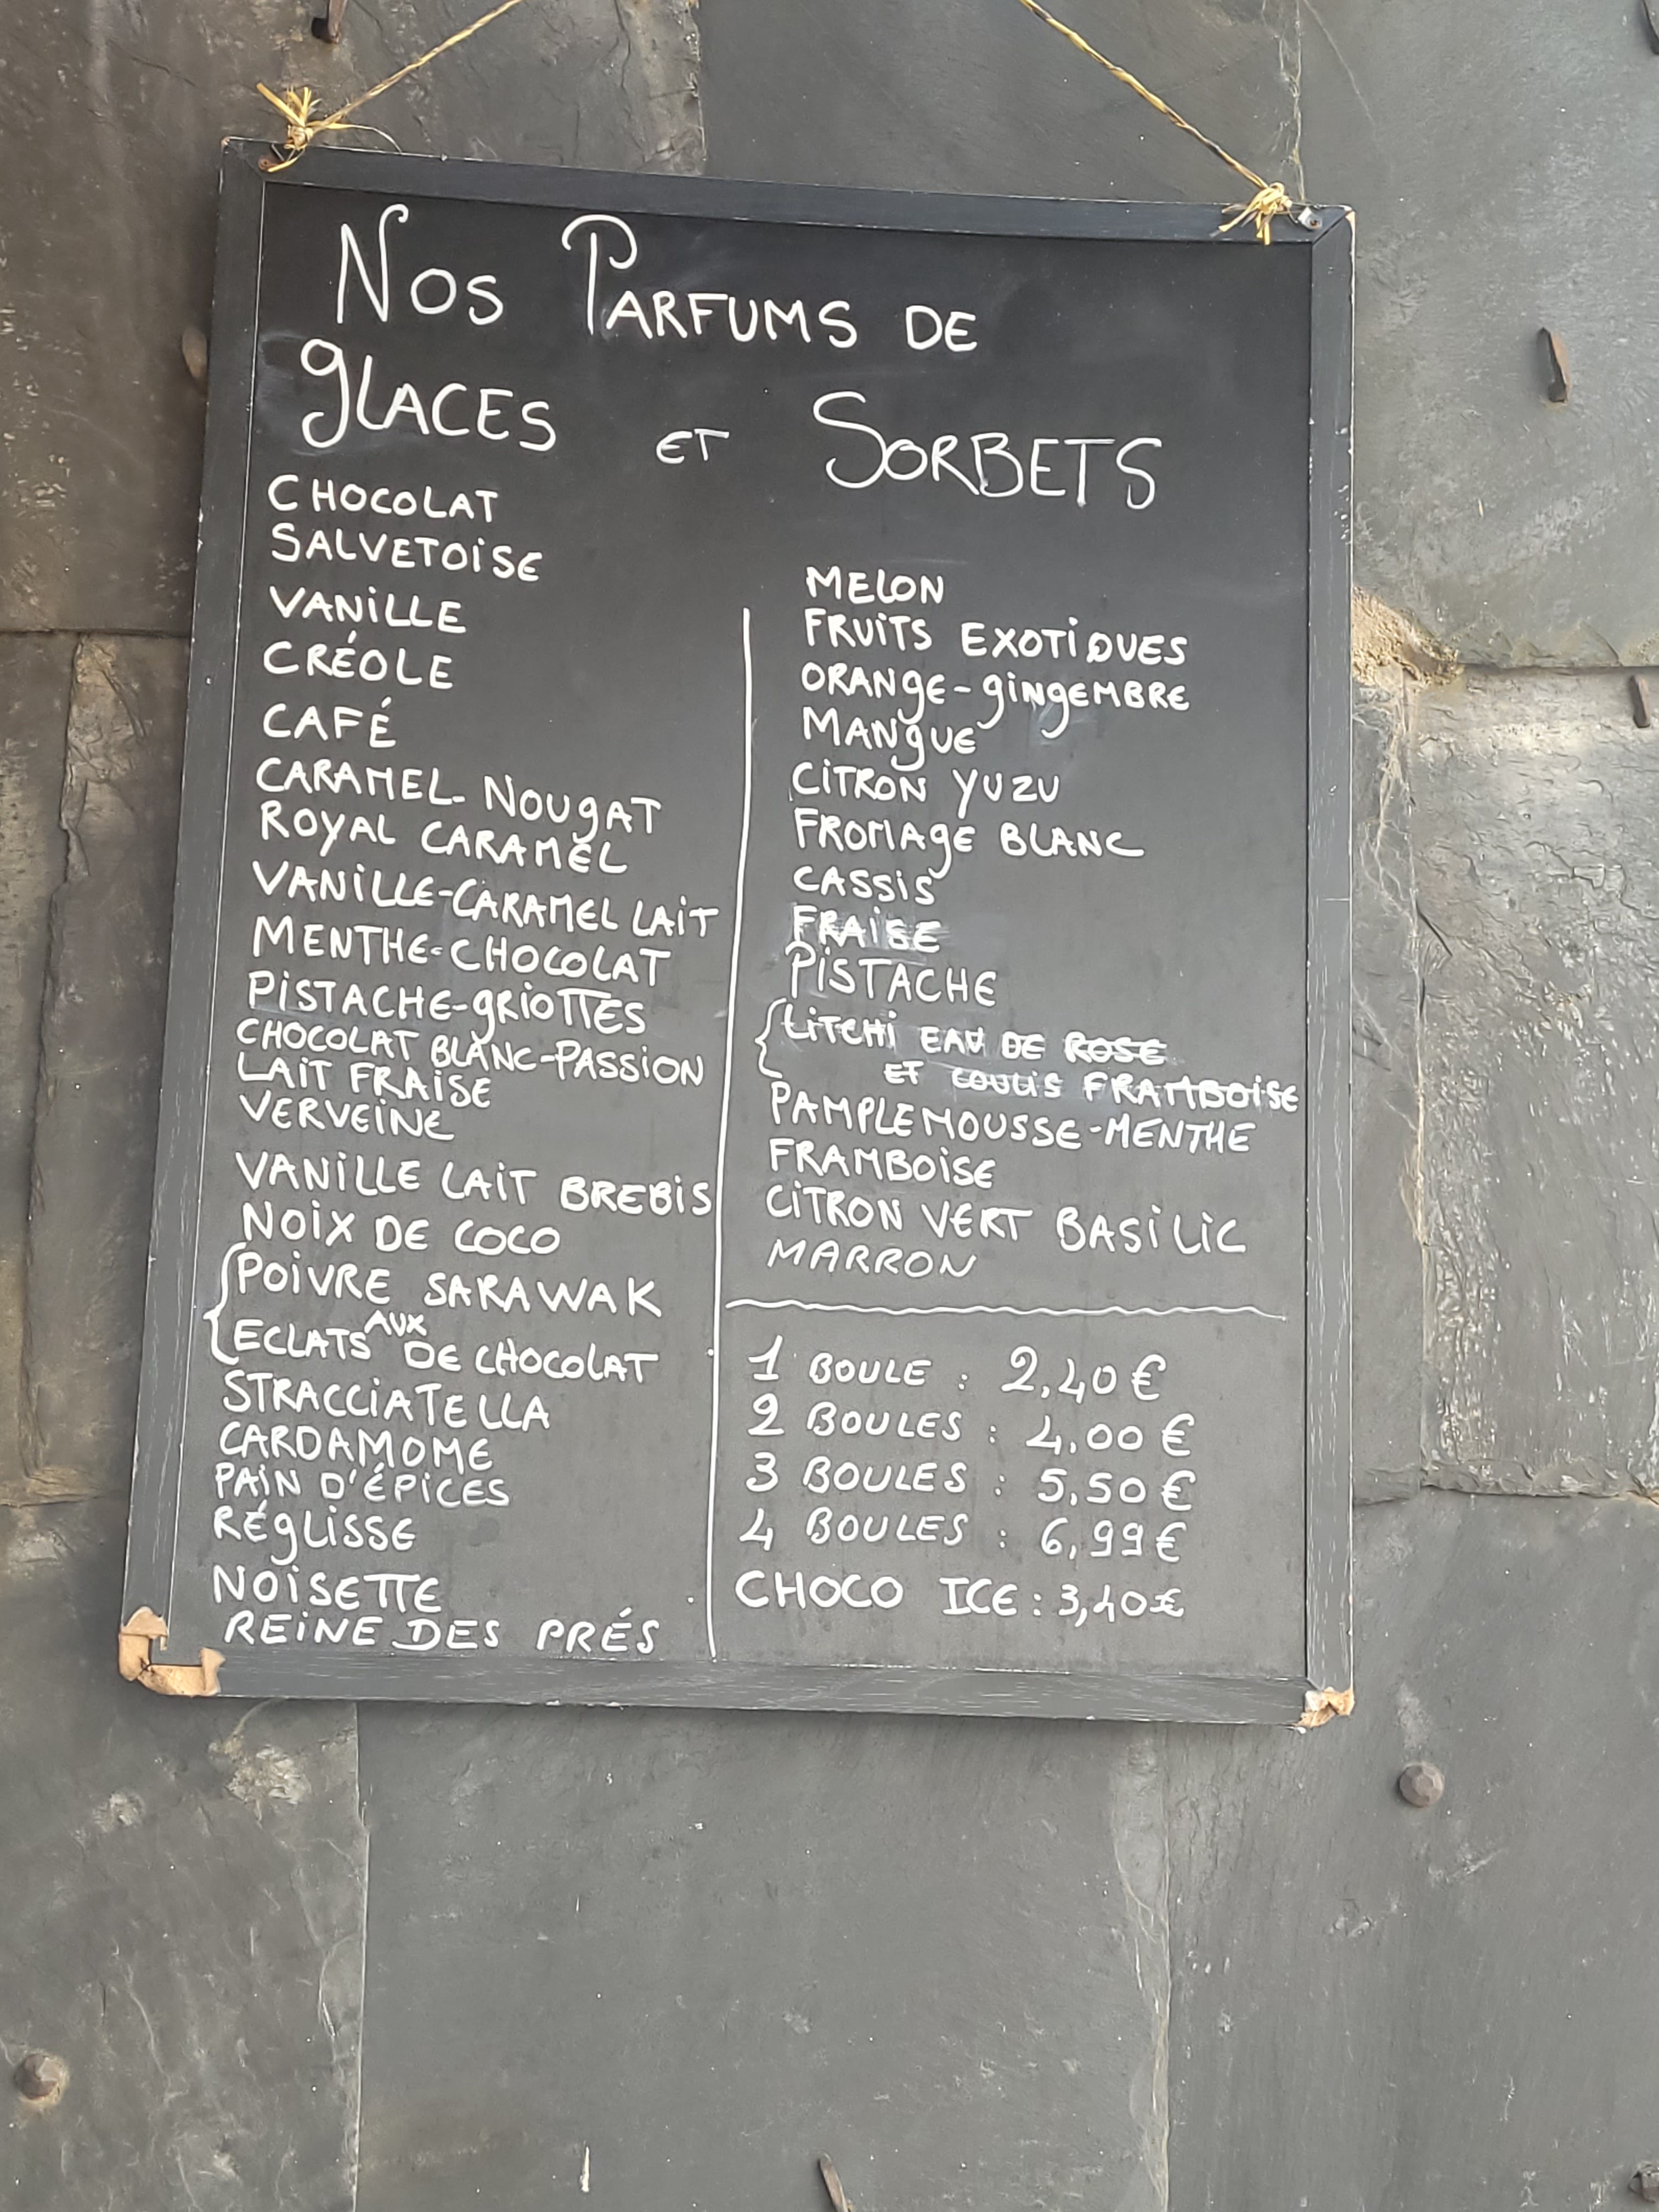 Nos Parfums de
glaces et Sorbets
CHOCOLAT
SALVETOISE
VANILLE
CRÉOLE
CAFÉ
CARAMEL-NOUGAT
ROYAL CARAMEL
VANILLE-CARAMEL LAIT
MENTHE-CHOCOLAT
PISTACHE-GRIOTTES
CHOCOLAT BLANC-PASSION
LAIT FRAISE
VERVEINE
VANILLE LAIT BREBIS
NOIX DE COCO
POIVRE SARAWAK
AUX
ECLATS DE CHOCOLAT
STRACCIATELLA
CARDAMOME
PAIN D'ÉPICES
RÉGLISSE
NOISETTE
REINE DES PRÉS
MELON
FRUITS EXOTIQUES
ORANGE-GINGEMBRE
MANGUE
CITRON YUZU
FROMAGE BLANC
CASSIS
FRAISE
PISTACHE
LITCHI EAU DE ROSE
ET COULIS FRAMBOISE
PAMPLEMOUSSE-MENTHE
FRAMBOISE
CITRON VERT BASILIC
MARRON
1 BOULE : 2,40 €
2 BOULES : 4,00 €
3 BOULES : 5,50 €
4 BOULES : 6,99 €
CHOCO ICE : 3,40 €